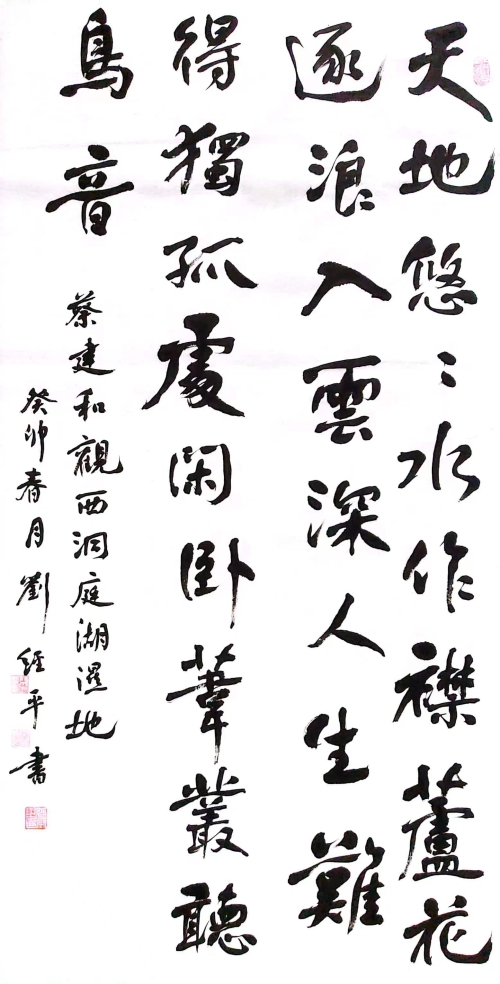 天地悠〻水作襟蘆花
逐浪入雲深人生難
得獨孤處閑卧葦叢聽
鳥音
蔡建和觀西洞庭湖濕地
癸卯春月劉經平書